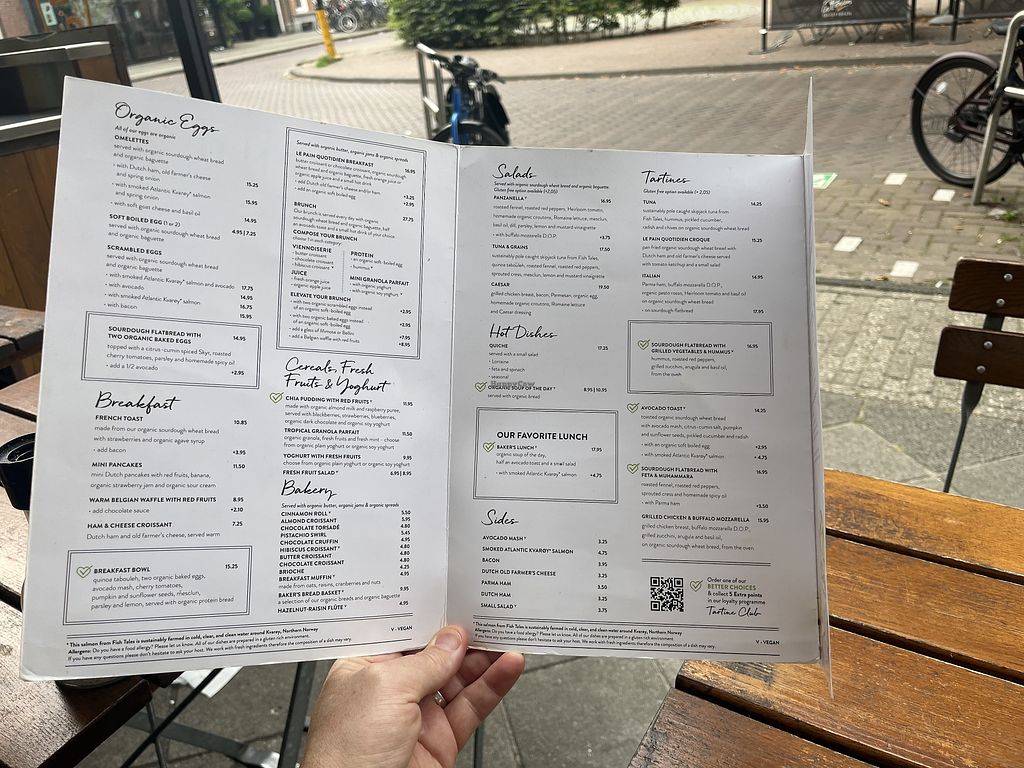 Organic Eggs
All of our eggs are organic
OMELETTES
served with organic sourdough wheat bread
and organic baguette
- with Dutch ham, old farmer's cheese
and spring onion 15.25
- with smoked Atlantic Kvarøy* salmon
and spring onion 15.95
- with soft goat cheese and basil oil 14.95
SOFT BOILED EGG (1 or 2) 4.95 | 7.25
served with organic sourdough wheat bread
and organic baguette
SCRAMBLED EGGS
served with organic sourdough wheat bread
and organic baguette
- with smoked Atlantic Kvarøy* salmon and avocado 17.75
- with avocado 14.95
- with smoked Atlantic Kvarøy* salmon 16.75
- with bacon 15.95
SOURDOUGH FLATBREAD WITH 14.95
TWO ORGANIC BAKED EGGS
topped with a citrus-cumin spiced Skyr, roasted
cherry tomatoes, parsley and homemade spicy oil
- add a 1/2 avocado +2.95
Breakfast
FRENCH TOAST 10.85
made from our organic sourdough wheat bread
with strawberries and organic agave syrup
- add bacon +3.95
MINI PANCAKES 11.50
mini Dutch pancakes with red fruits, banana,
organic strawberry jam and organic sour cream
WARM BELGIAN WAFFLE WITH RED FRUITS 8.95
- add chocolate sauce +2.10
HAM & CHEESE CROISSANT 7.25
Dutch ham and old farmer's cheese, served warm
BREAKFAST BOWL 15.25
quinoa tabouleh, two organic baked eggs,
avocado mash, cherry tomatoes,
pumpkin and sunflower seeds, mesclun,
parsley and lemon, served with organic protein bread
Served with organic butter, organic jams & organic spreads
LE PAIN QUOTIDIEN BREAKFAST 16.95
butter croissant or chocolate croissant, organic sourdough
wheat bread and organic baguette, fresh orange juice or
organic apple juice and a small hot drink
- add Dutch old farmer's cheese and/or ham +3.25
- add an organic soft boiled egg +2.95
BRUNCH 27.75
Our brunch is served every day with organic
sourdough wheat bread and organic baguette, half
an avocado toast and a small hot drink of your choice
COMPOSE YOUR BRUNCH
choose 1 in each category:
VIENNOISERIE
- butter croissant
- chocolate croissant
- hibiscus croissant ᵛ
JUICE
- fresh orange juice
- organic apple juice
PROTEIN
- an organic soft-boiled egg
- hummus ᵛ
MINI GRANOLA PARFAIT
- with organic yoghurt
- with organic soy yoghurt ᵛ
ELEVATE YOUR BRUNCH
- with two organic scrambled eggs instead
of an organic soft-boiled egg +2.95
- with two organic baked eggs instead
of an organic soft-boiled egg +2.95
- add a glass of Mimosa or Bellini +7.95
- add a Belgian waffle with red fruits +8.95
Cereals, Fresh
Fruits & Yoghurt
CHIA PUDDING WITH RED FRUITS ᵛ 11.95
made with organic almond milk and raspberry puree,
served with blackberries, strawberries, blueberries,
organic dark chocolate and organic soy yoghurt
TROPICAL GRANOLA PARFAIT 11.50
organic granola, fresh fruits and fresh mint - choose
from organic plain yoghurt or organic soy yoghurt
YOGHURT WITH FRESH FRUITS 9.95
choose from organic plain yoghurt or organic soy yoghurt
FRESH FRUIT SALAD ᵛ 6.95 | 8.95
Bakery
Served with organic butter, organic jams & organic spreads
CINNAMON ROLL ᵛ 5.50
ALMOND CROISSANT 5.95
CHOCOLATE TORSADÉ 4.80
PISTACHIO SWIRL 5.45
CHOCOLATE CRUFFIN 4.95
HIBISCUS CROISSANT ᵛ 4.80
BUTTER CROISSANT 4.80
CHOCOLATE CROISSANT 4.80
BRIOCHE 4.25
BREAKFAST MUFFIN ᵛ 4.95
made from oats, raisins, cranberries and nuts
BAKER'S BREAD BASKET ᵛ 9.95
a selection of our organic breads and organic baguette
HAZELNUT-RAISIN FLÛTE ᵛ 4.95
*This salmon from Fish Tales is sustainably farmed in cold, clear, and clean water around Kvarøy, Northern Norway
Allergens: Do you have a food allergy? Please let us know. All of our dishes are prepared in a gluten rich environment.
If you have any questions please don't hesitate to ask your host. We work with fresh ingredients therefore the composition of a dish may vary.
V - VEGAN
Salads
Served with organic sourdough wheat bread and organic baguette
Gluten free option available (+2,05)
PANZANELLA ᵛ 16.95
roasted fennel, roasted red peppers, Heirloom tomato,
homemade organic croutons, Romaine lettuce, mesclun,
basil oil, dill, parsley, lemon and mustard vinaigrette
- with buffalo mozzarella D.O.P. +3.75
TUNA & GRAINS 17.50
sustainably pole caught skipjack tuna from Fish Tales,
quinoa tabouleh, roasted fennel, roasted red peppers,
sprouted cress, mesclun, lemon and mustard vinaigrette
CAESAR 19.50
grilled chicken breast, bacon, Parmesan, organic egg,
homemade organic croutons, Romaine lettuce
and Caesar dressing
Hot Dishes
QUICHE 17.25
served with a small salad
- Lorraine
- feta and spinach
- seasonal
HappyCow
ORGANIC SOUP OF THE DAY ᵛ 8.95 | 10.95
served with organic bread
OUR FAVORITE LUNCH
BAKER'S LUNCH ᵛ 17.95
organic soup of the day,
half an avocado toast and a small salad
- with smoked Atlantic Kvarøy* salmon +4.75
Sides
AVOCADO MASH ᵛ 3.25
SMOKED ATLANTIC KVARØY* SALMON 4.75
BACON 3.95
DUTCH OLD FARMER'S CHEESE 3.25
PARMA HAM 3.50
DUTCH HAM 3.25
SMALL SALAD ᵛ 3.75
Tartines
Gluten free option available (+ 2,05)
TUNA 14.25
sustainably pole caught skipjack tuna from
Fish Tales, hummus, pickled cucumber,
radish and chives on organic sourdough wheat bread
LE PAIN QUOTIDIEN CROQUE 15.25
pan fried organic sourdough wheat bread with
Dutch ham and old farmer's cheese served
with tomato ketchup and a small salad
ITALIAN 14.95
Parma ham, buffalo mozzarella D.O.P.,
organic pesto rosso, Heirloom tomato and basil oil
on organic sourdough wheat bread
- on sourdough flatbread 17.95
SOURDOUGH FLATBREAD WITH 16.95
GRILLED VEGETABLES & HUMMUS ᵛ
hummus, roasted red peppers,
grilled zucchini, arugula and basil oil,
from the oven
AVOCADO TOAST ᵛ 14.25
toasted organic sourdough wheat bread
with avocado mash, citrus-cumin salt, pumpkin
and sunflower seeds, pickled cucumber and radish
- with an organic soft boiled egg +2.95
- with smoked Atlantic Kvarøy* salmon + 4.75
SOURDOUGH FLATBREAD WITH 16.95
FETA & MUHAMMARA
roasted fennel, roasted red peppers,
sprouted cress and homemade spicy oil
- with Parma ham +3.50
GRILLED CHICKEN & BUFFALO MOZZARELLA 15.95
grilled chicken breast, buffalo mozzarella D.O.P.,
grilled zucchini, arugula and basil oil,
on organic sourdough wheat bread, from the oven
Order one of our
BETTER CHOICES
& collect 5 Extra points
in our loyalty programme
Tartine Club
*This salmon from Fish Tales is sustainably farmed in cold, clear, and clean water around Kvarøy, Northern Norway
Allergens: Do you have a food allergy? Please let us know. All of our dishes are prepared in a gluten rich environment.
If you have any questions please don't hesitate to ask your host. We work with fresh ingredients therefore the composition of a dish may vary.
V - VEGAN